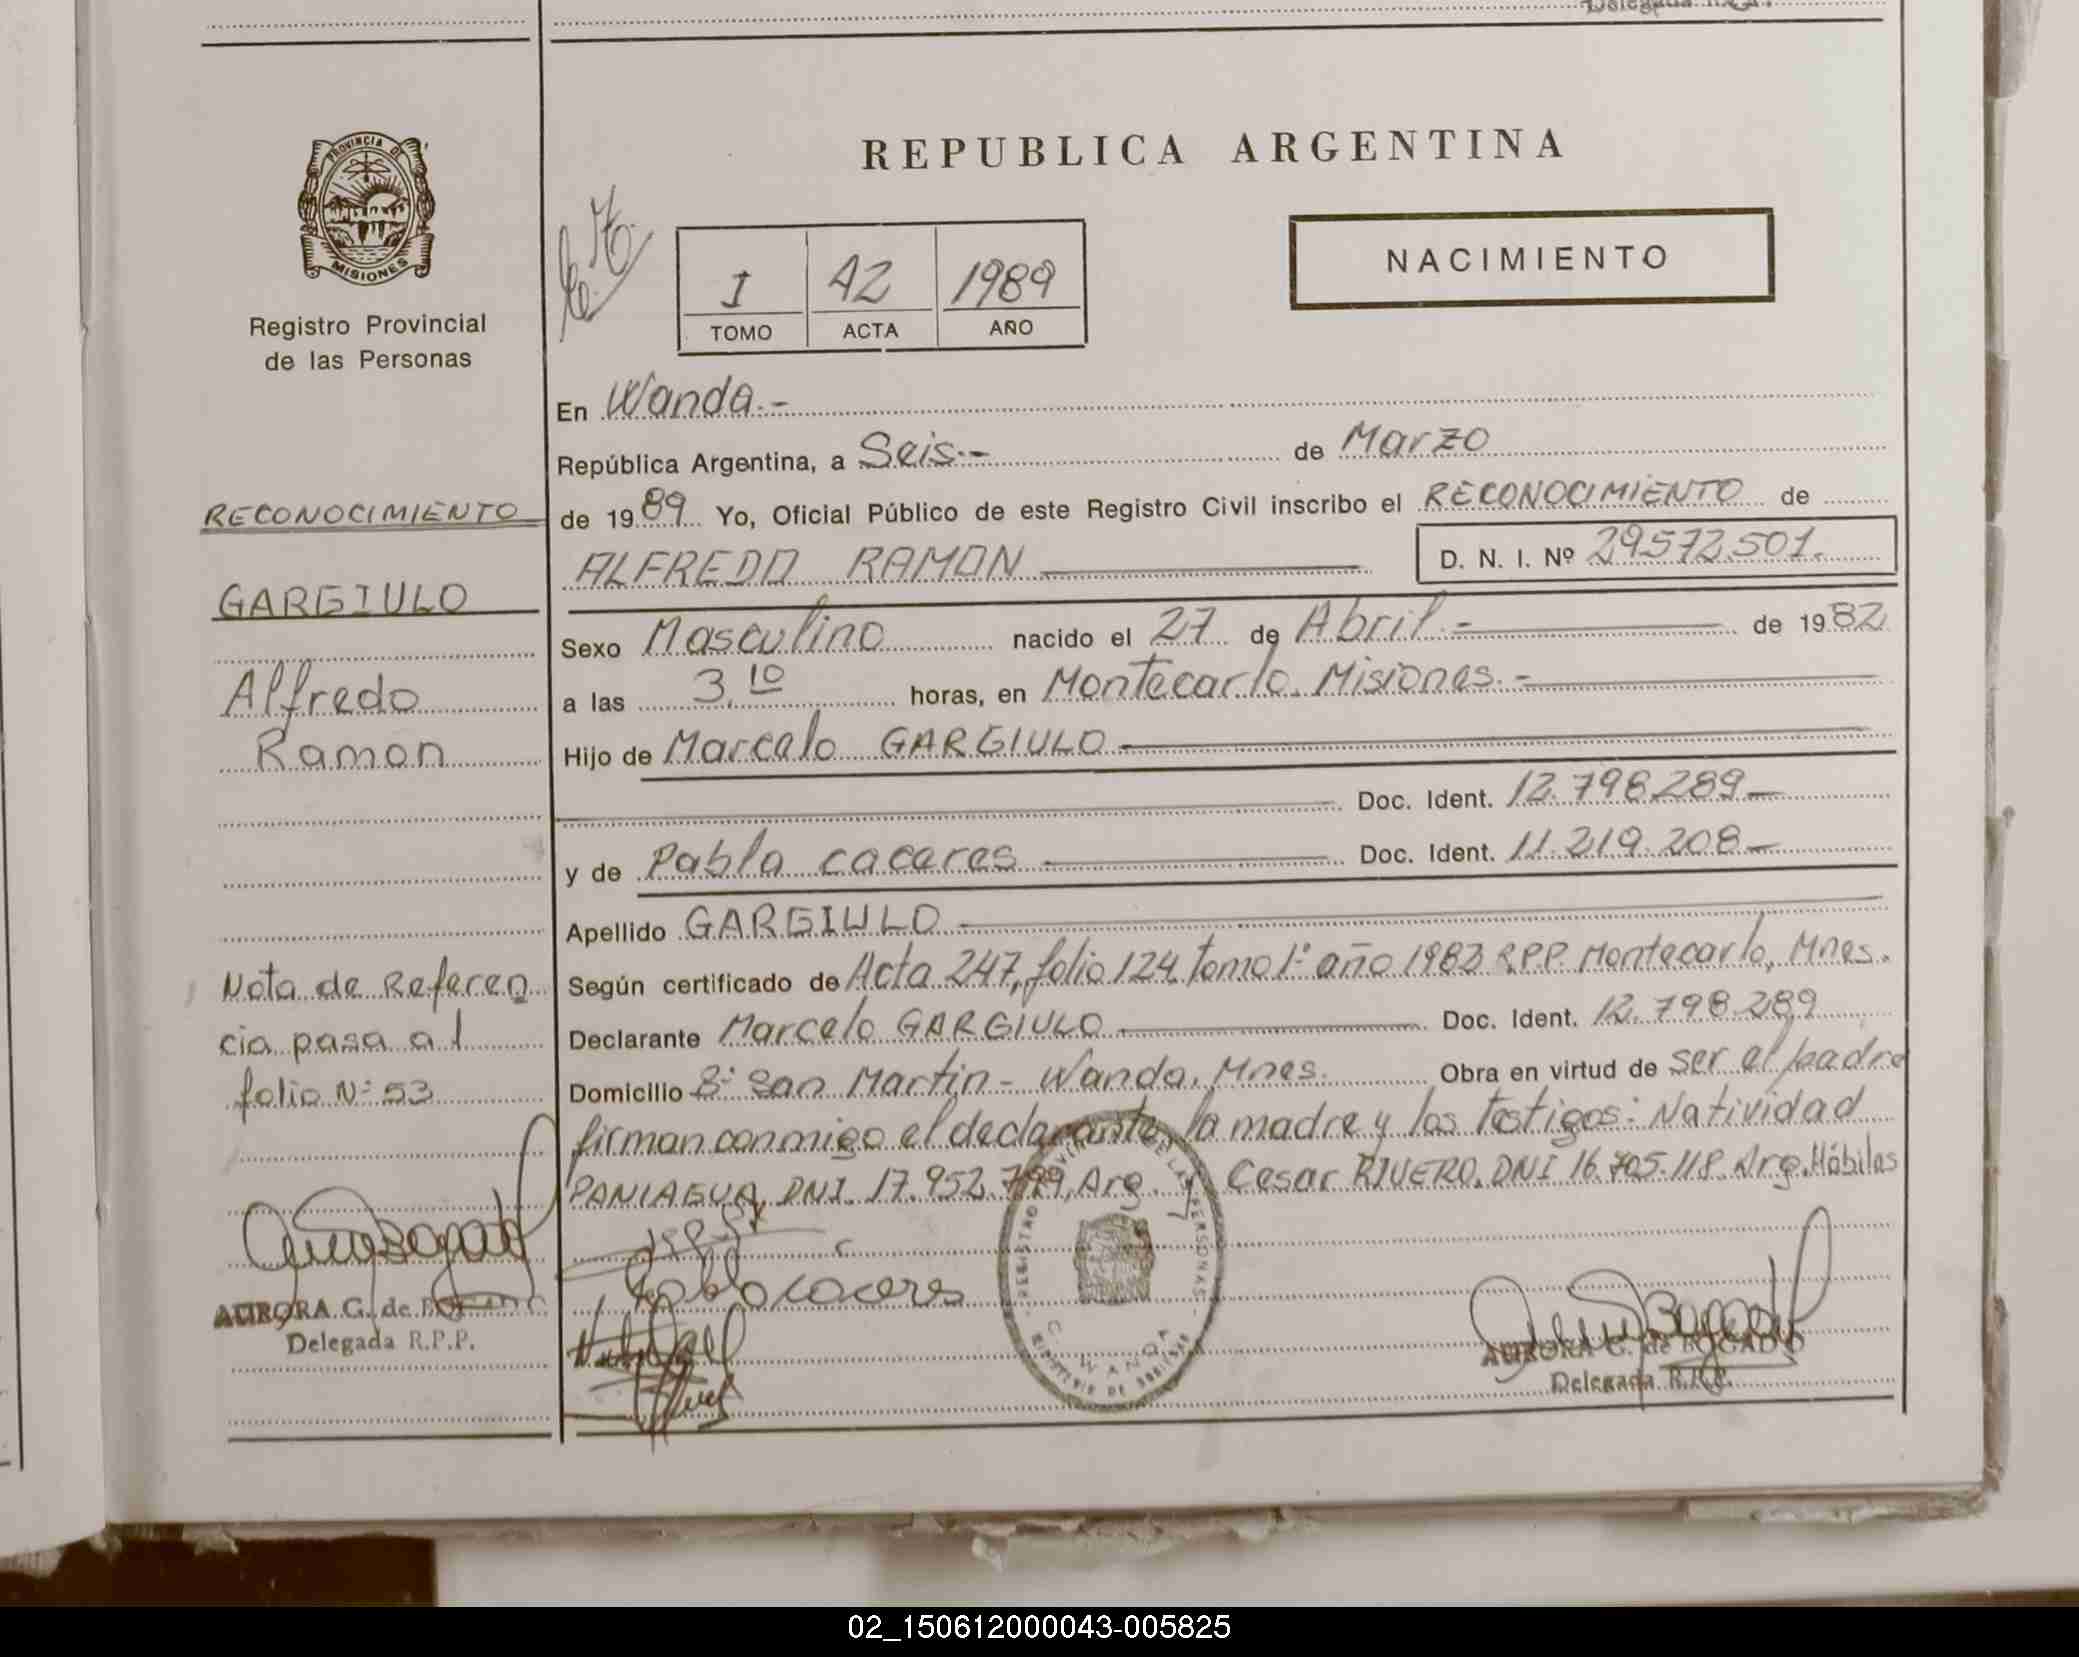 Delegada R.P.P.
PROVINCIA DE
MISIONES
Registro Provincial
de las Personas
RECONOCIMIENTO
GARGIULO
Alfredo
Ramon
Nota de Referen
cia pasa al
folio Nº 53
AURORA G. de BOGADO
Delegada R.P.P.
REPUBLICA ARGENTINA
I 42 1989
TOMO ACTA AÑO
NACIMIENTO
En Wanda.-
República Argentina, a Seis.- de Marzo
de 1989 Yo, Oficial Público de este Registro Civil inscribo el RECONOCIMIENTO de
ALFREDO RAMON D. N. I. Nº 29.572.501.
Sexo Masculino nacido el 27 de Abril.- de 1982
a las 3,10 horas, en Montecarlo. Misiones.-
Hijo de Marcelo GARGIULO
Doc. Ident. 12.798.289-
y de Pabla caceres Doc. Ident. 11.219.208-
Apellido GARGIULO
Según certificado de Acta 247, folio 124 tomo 1º año 1983 R.P.P. Montecarlo, Mnes.
Declarante Marcelo GARGIULO Doc. Ident. 12.798.289
Domicilio Bº San Martin - Wanda. Mnes. Obra en virtud de ser el padre
firman conmigo el declarante, la madre y los testigos: Natividad
PANIAGUA, DNI. 17.952.799, Arg. y Cesar RIVERO, DNI 16.705.118. Arg. Hábiles
Pabla caceres
REGISTRO PROVINCIAL DE LAS PERSONAS
WANDA
MINISTERIO DE GOBIERNO
AURORA G. de BOGADO
Delegada R.P.P.
02_150612000043-005825